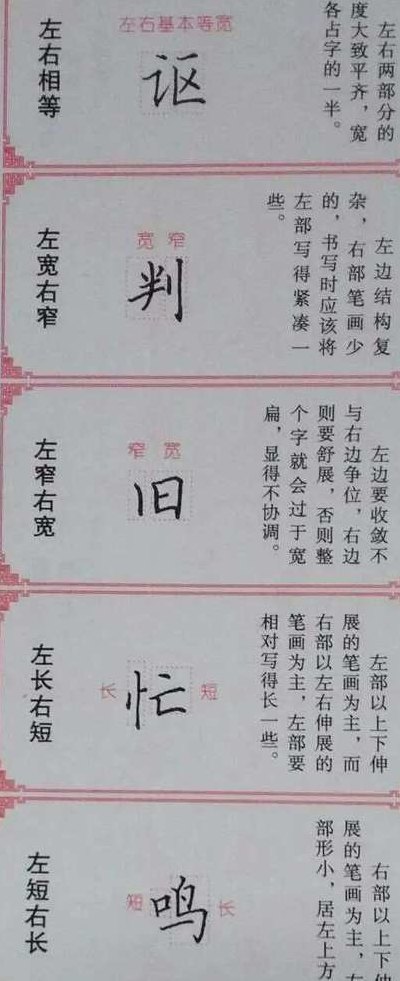 左右相等
左右基本等宽
讴
左右两部分的
度大致平齐，宽
各占字的一半。
左宽右窄
宽 窄
判
左边结构复
杂，右部笔画少
的，书写时应该将
左部写得紧凑一
些。
左窄右宽
窄 宽
旧
左边要收敛不
与右边争位，右边
则要舒展，否则整
个字就会过于宽
扁，显得不协调。
左长右短
长 忙 短
左部以上下伸
展的笔画为主，而
右部以左右伸展的
笔画为主，左部要
相对写得长一些。
左短右长
短 鸣 长
右部以上下伸
展的笔画为主，左
部形小，居左上方